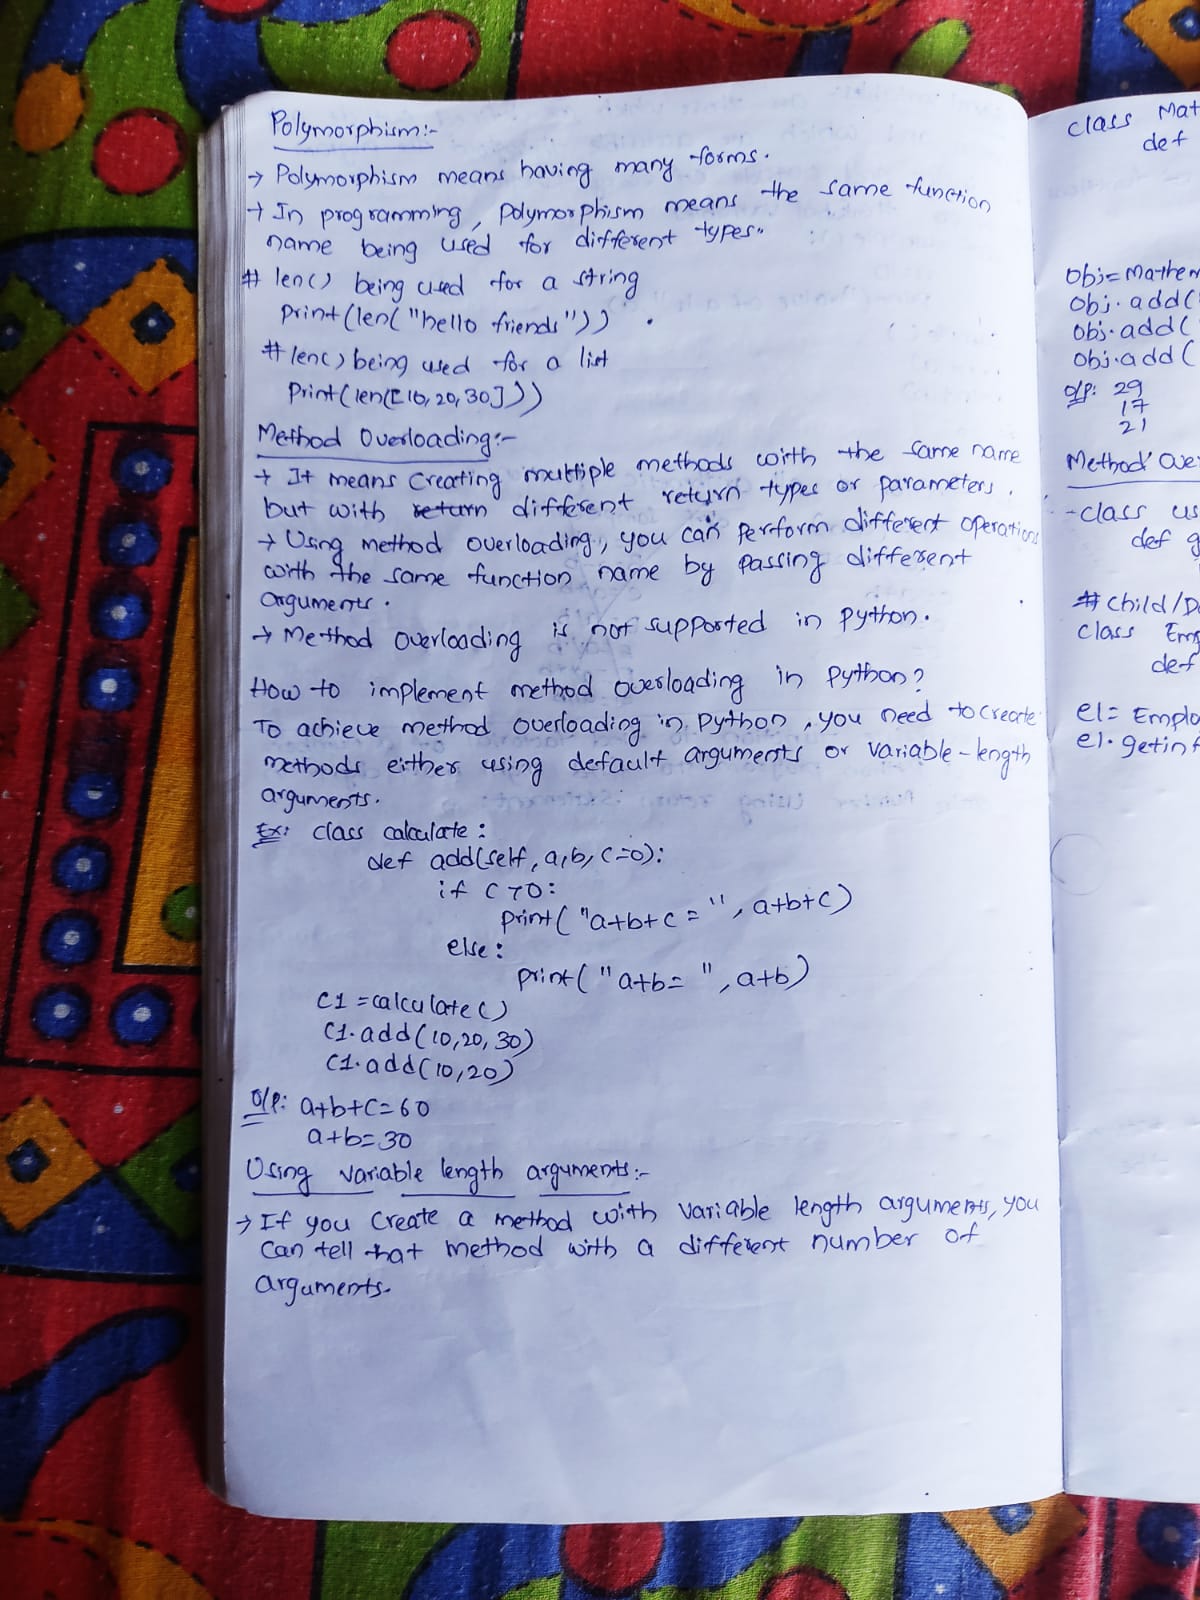 Polymorphism:-
→ Polymorphism means having many forms.
→ In programming, Polymorphism means the same function
name being used for different types.
# len() being used for a string
Print(len("hello friends"))
# len() being used for a list
Print(len([10,20,30]))
Method Overloading:-
→ It means Creating multiple methods with the same name
but with return different return types or parameters.
→ Using method overloading, you can perform different operations
with the same function name by passing different
arguments.
→ Method overloading is not supported in Python.
How to implement method overloading in Python?
To achieve method overloading in Python, you need to create
methods either using default arguments or variable-length
arguments.
Ex: class calculate:
def add(self,a,b,c=0):
if c>0:
print("a+b+c = ", a+b+c)
else:
print("a+b= ", a+b)
C1 = calculate()
C1.add(10,20,30)
C1.add(10,20)
O/P: a+b+c=60
a+b=30
Using variable length arguments:-
→ If you create a method with variable length arguments, you
can tell that method with a different number of
arguments.
class Mat
def
Obj=Mathem
Obj.add(
Obj.add(
Obj.add(
O/P: 29
17
21
Method Ove
-class us
def g
# Child/De
class Emp
def
e1= Emplo
e1.getinf